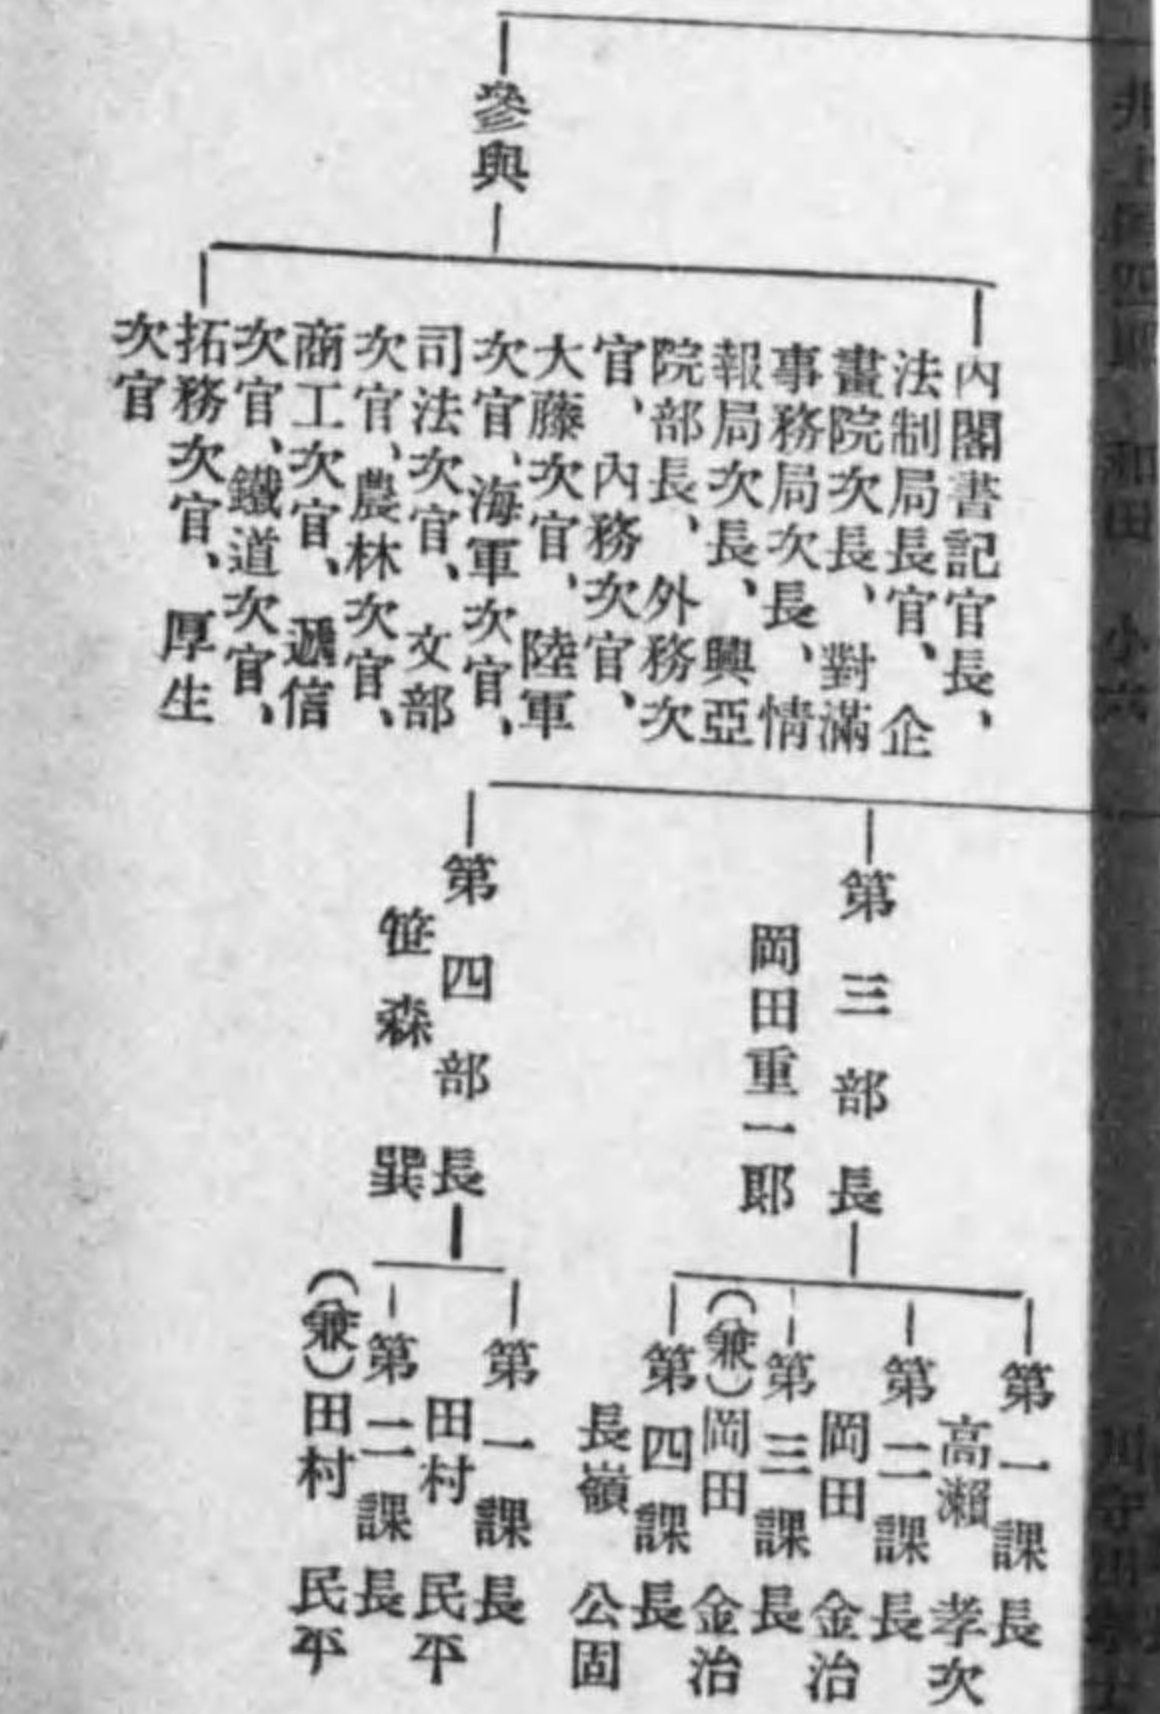 參與
內閣書記官長、
法制局長官、企
畫院次長、對滿
事務局次長、情
報局次長、興亞
院部長、外務次
官、內務次官、
大藤次官、陸軍
次官、海軍次官、
司法次官、文部
次官、農林次官、
商工次官、遞信
次官、鐵道次官、
拓務次官、厚生
次官
第三部長
岡田重一郎
第一課長
高瀨孝次
第二課長
岡田金治
第三課長
(兼)岡田金治
第四課長
長嶺公固
第四部長
笹森巽
第一課長
田村民平
第二課長
(兼)田村民平